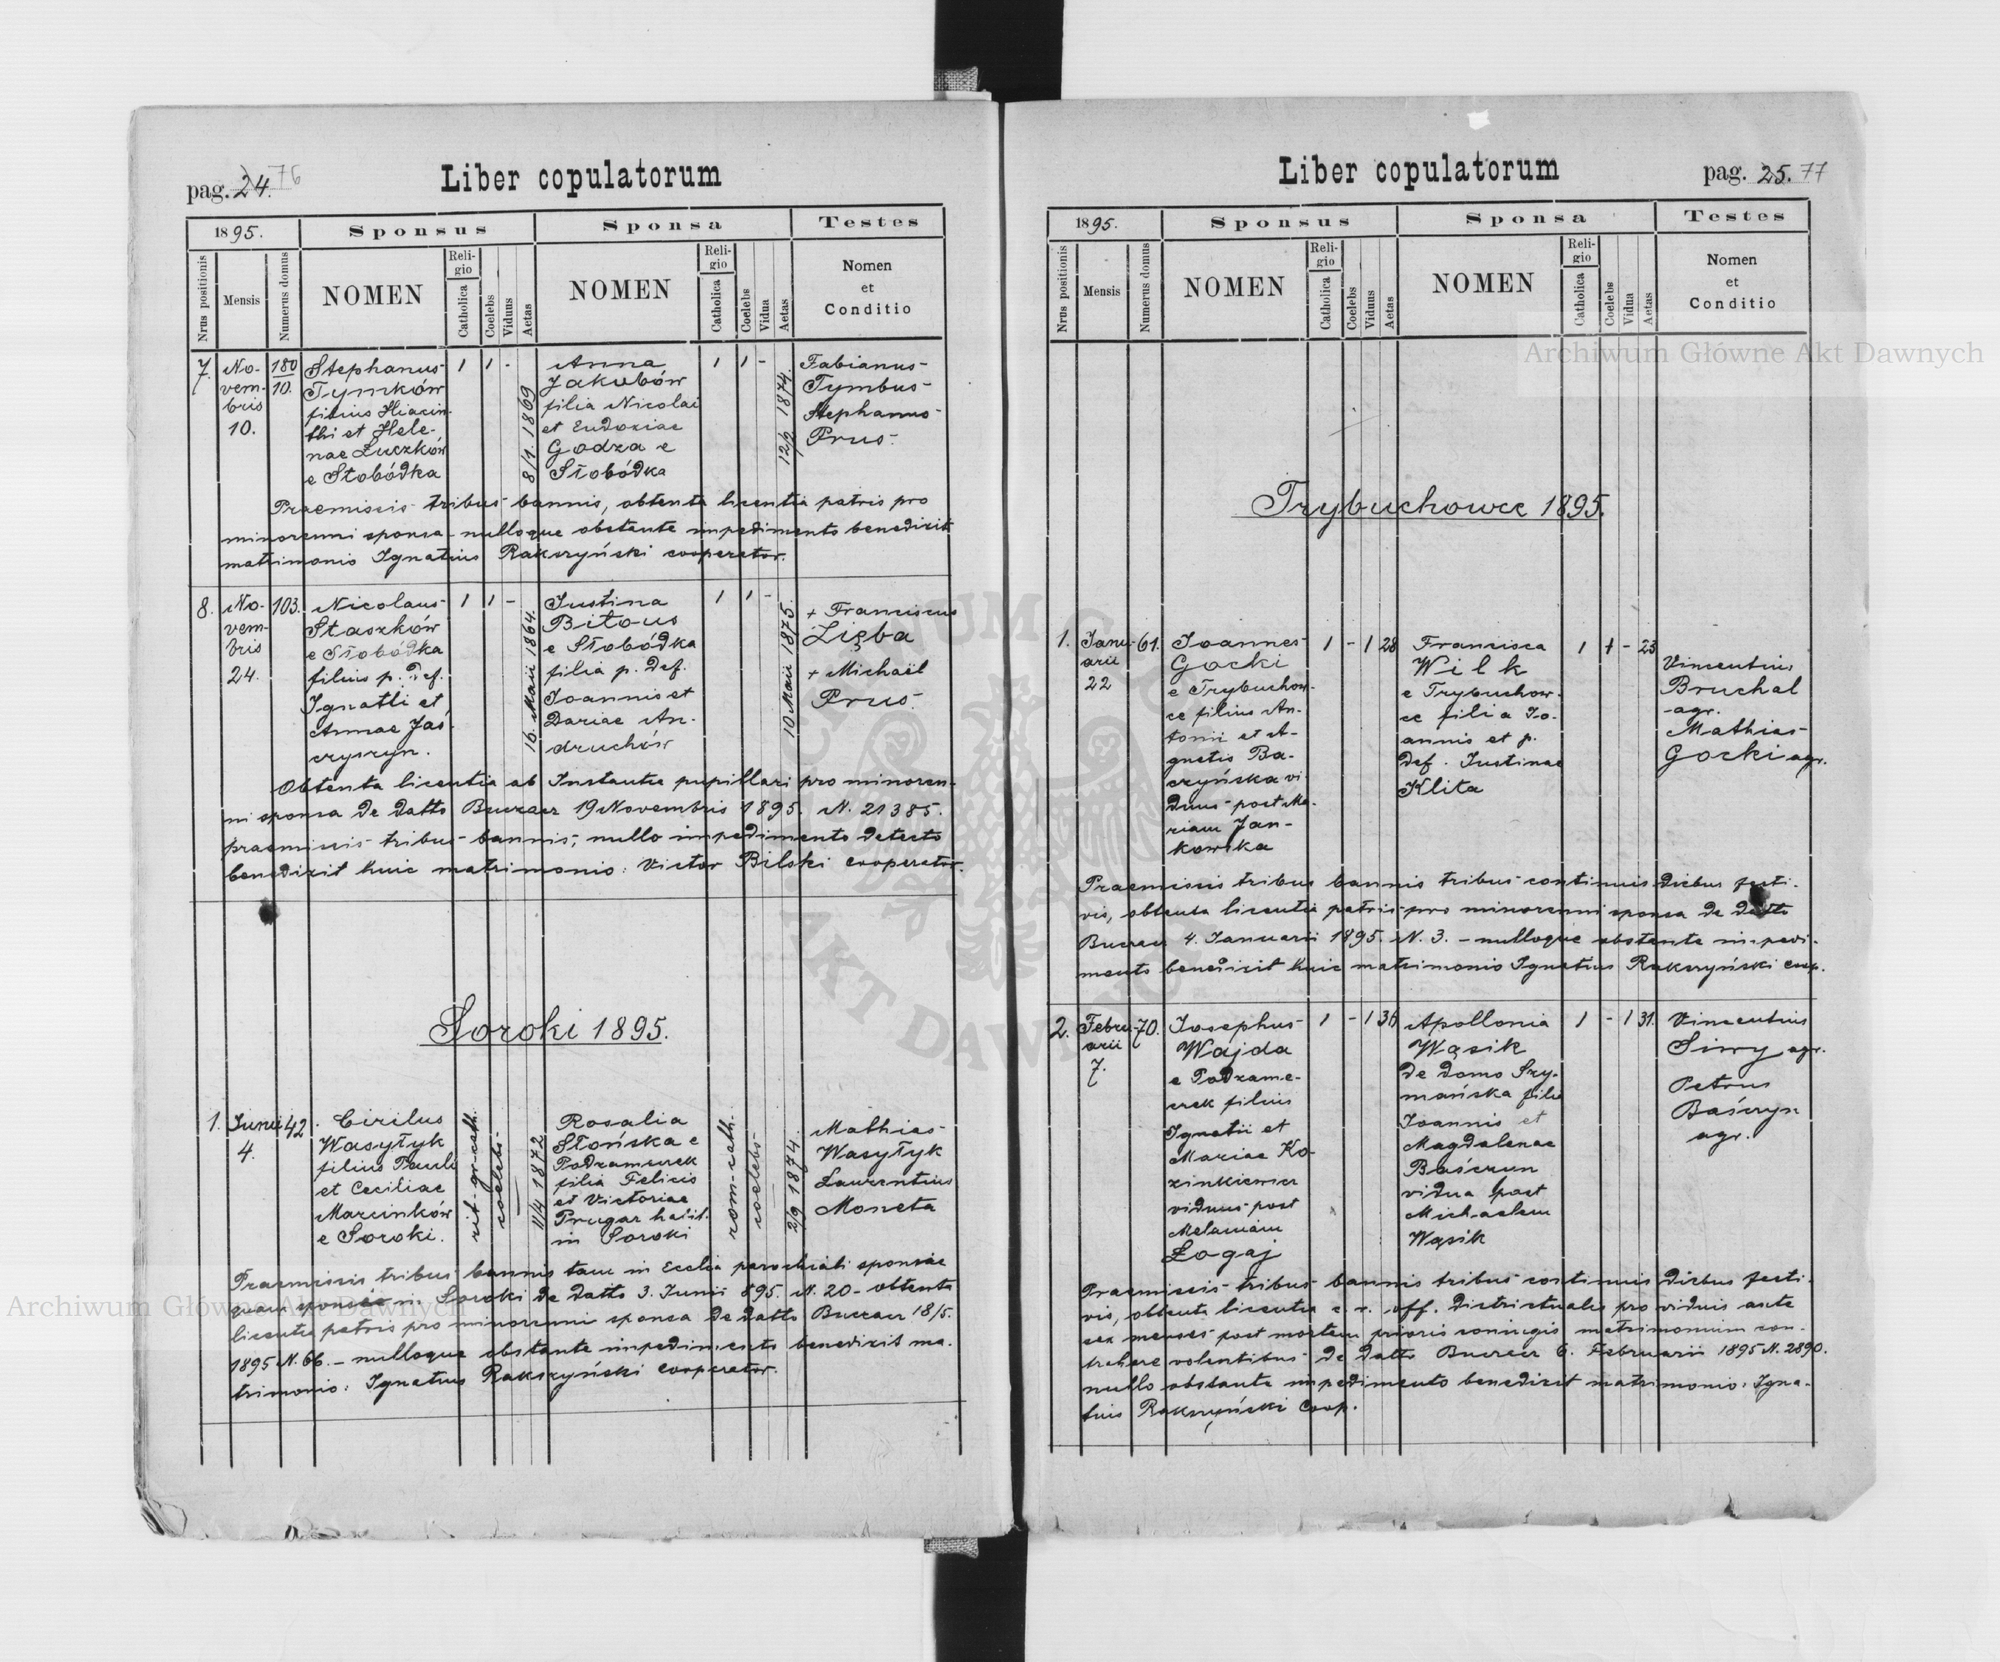 pag. 24. 76
Liber copulatorum
1895.
Sponsus
Sponsa
Testes
Nrus positionis
Mensis
Numerus domus
NOMEN
Religio
Catholica
Coelebs
Viduus
Aetas
NOMEN
Religio
Catholica
Coelebs
Vidua
Aetas
Nomen
et
Conditio
7.
No-
vem-
bris
10.
180
10.
Stephanus
Tymków
filius Hiacin-
thi et Hele-
nae Łuczków
e Słobódka
1 1 -
8/1. 1869
Anna
Jakubów
filia Nicolai
et Eudoxiae
Godza e
Słobódka
1 1 -
1874.
Fabianus
Tymbus
Stephanus
Prus.
Praemissis tribus bannis, obtenta licentia patris pro
minorenni sponsa nulloque obstante impedimento benedixit
matrimonio Ignatius Rakszyński cooperator.
8.
No-
vem-
bris
24.
103.
Nicolaus
Staszków
e Słobódka
filius p. def.
Ignatii et
Annae Jaś-
czyszyn.
1 1 -
16. Maii 1864.
Justina
Bitous
e Słobódka
filia p. def.
Joannis et
Dariae An-
druchów
1 1 -
10 Maii 1875.
+ Franciscus
Zięba
+ Michaël
Prus.
Obtenta licentia ab Instantia pupillari pro minoren-
ni sponsa de datto Buczacz 19 Novembris 1895. N. 21385.
praemissis tribus bannis, nullo impedimento detecto
benedixit huic matrimonio: Victor Bilski cooperator.
Soroki 1895.
1.
Junii
4.
42.
Cirilus
Wasyłyk
filius Pauli
et Ceciliae
Marcinków
e Soroki.
rit. gr. cath.
coelebs
11/4 1872
Rosalia
Słońska e
Podzameczek
filia Felicis
et Victoriae
Prugar habit.
in Soroki
rom-cath.
coelebs
2/9 1874.
Mathias
Wasyłyk
Laurentius
Moneta
Praemissis tribus bannis tam in Ecclia parochiali sponsae
quam sponsi in Soroki de datto 3. Junii 895. N. 20 - obtenta
licentia patris pro minorenni sponsa de datto Buczacz 18/5.
1895 N. 66. - nulloque obstante impedimento benedixit ma-
trimonio: Ignatius Rakszyński cooperator.
Liber copulatorum
pag. 25. 77
1895.
Sponsus
Sponsa
Testes
Nrus positionis
Mensis
Numerus domus
NOMEN
Religio
Catholica
Coelebs
Viduus
Aetas
NOMEN
Religio
Catholica
Coelebs
Vidua
Aetas
Nomen
et
Conditio
Trybuchowce 1895.
1.
Janu-
arii
22
61.
Joannes
Gocki
e Trybuchow-
ce filius An-
tonii et A-
gnetis Ba-
czyńska vi-
duus post Ma-
riam Jan-
kowska
1 - 1 28
Francisca
Wilk
e Trybuchow-
ce filia Jo-
annis et p.
def. Justinae
Klita
1 1 - 23
Vincentius
Bruchal
agr.
Mathias
Gocki agr.
Praemissis tribus bannis tribus continuis diebus festi-
vis, obtenta licentia patris pro minorenni sponsa de datto
Buczacz 4. Januarii 1895. N. 3. - nulloque obstante impedi-
mento benedixit huic matrimonio Ignatius Rakszyński coop.
2.
Febru-
arii
7.
70.
Josephus
Wajda
e Podzame-
czek filius
Ignatii et
Mariae Ko-
zinkiewicz
viduus post
Melaniam
Łogaj
1 - 1 36
Apollonia
Wąsik
de domo Szy-
mańska filia
Joannis et
Magdalenae
Baśczun
vidua post
Michaelem
Wąsik
1 - 1 31.
Vincentius
Siwy agr.
Petrus
Baśczyn
agr.
Praemissis tribus bannis tribus continuis diebus festi-
vis, obtenta licentia c. r. off. districtualis pro viduis ante
sex menses post mortem prioris coniugis matrimonium con-
trahere volentibus de datto Buczacz 6. Februarii 1895 N. 2890.
nullo obstante impedimento benedixit matrimonio: Igna-
tius Rakszyński Coop.
Archiwum Główne Akt Dawnych
Archiwum Główne Akt Dawnych